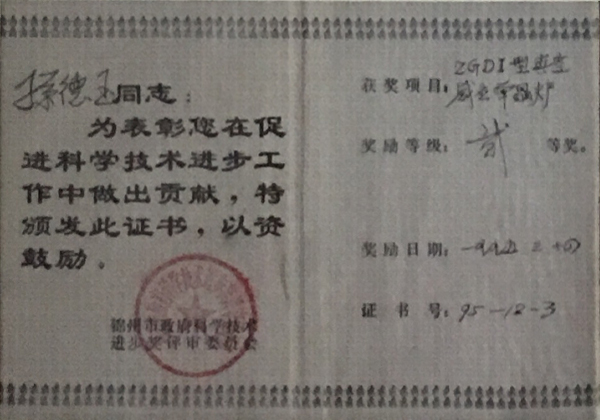 德玉同志：
为表彰您在促
进科学技术进步工
作中做出贡献，特
颁发此证书，以资
鼓励。
锦州市政府科学技术
进步奖评审委员会
获奖项目：ZGDI型真空
炉
奖励等级：贰 等奖。
奖励日期：
证书号：95-12-3